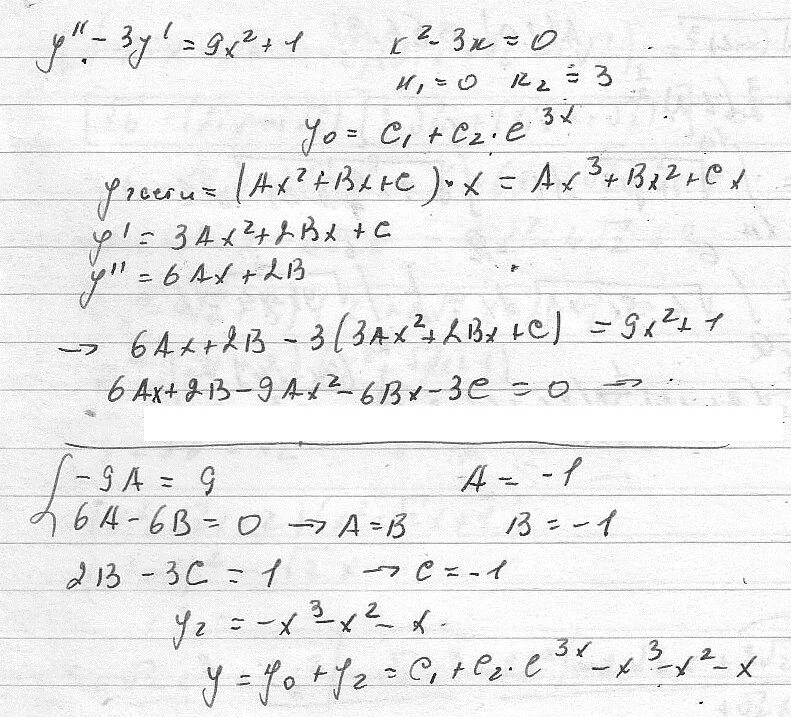 y'' - 3y' = 9x² + 1    к² - 3к = 0
к₁ = 0  к₂ = 3
y₀ = C₁ + C₂·e^3x
y части = (Ax² + Bx + C)·x = Ax³ + Bx² + Cx
y' = 3Ax² + 2Bx + C
y'' = 6Ax + 2B
→ 6Ax + 2B - 3(3Ax² + 2Bx + C) = 9x² + 1
6Ax + 2B - 9Ax² - 6Bx - 3C = 0 →
{ -9A = 9    A = -1
6A - 6B = 0 → A = B    B = -1
2B - 3C = 1 → C = -1
y₂ = -x³ - x² - x.
y = y₀ + y₂ = C₁ + C₂·e^3x - x³ - x² - x